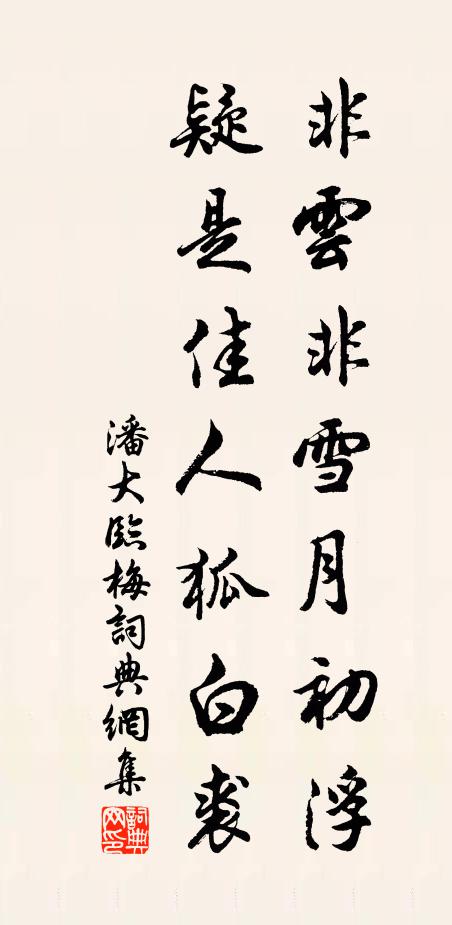 非雲非雪月初浮
疑是佳人狐白裘
潘大臨梅詞典網集
詞典网印